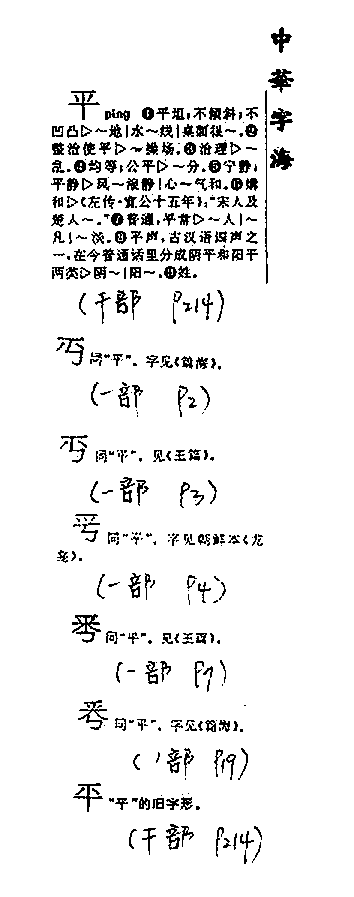 中華字海
平 píng ❶平坦,不倾斜;不
凹凸▷~地|水~线|桌面很~。❷
整治使平▷~操场。❸治理▷~
乱。❹均等;公平▷~分。❺宁静;
平静▷风~浪静|心~气和。❻媾
和▷《左传·宣公十五年》:“宋人及
楚人~。”❼普通,平常▷~人|~
凡|~淡。❽平声,古汉语四声之
一,在今普通话里分成阴平和阳平
两类▷阴~|阳~。❾姓。
(干部 P214)
同“平”。字见《篇海》。
(一部 P2)
同“平”。见《玉篇》。
(一部 P3)
同“平”。字见朝鲜本《龙
龛》。
(一部 P4)
同“平”。见《玉篇》。
(一部 P7)
同“平”。字见《篇海》。
(丿部 P19)
“平”的旧字形。
(干部 P214)